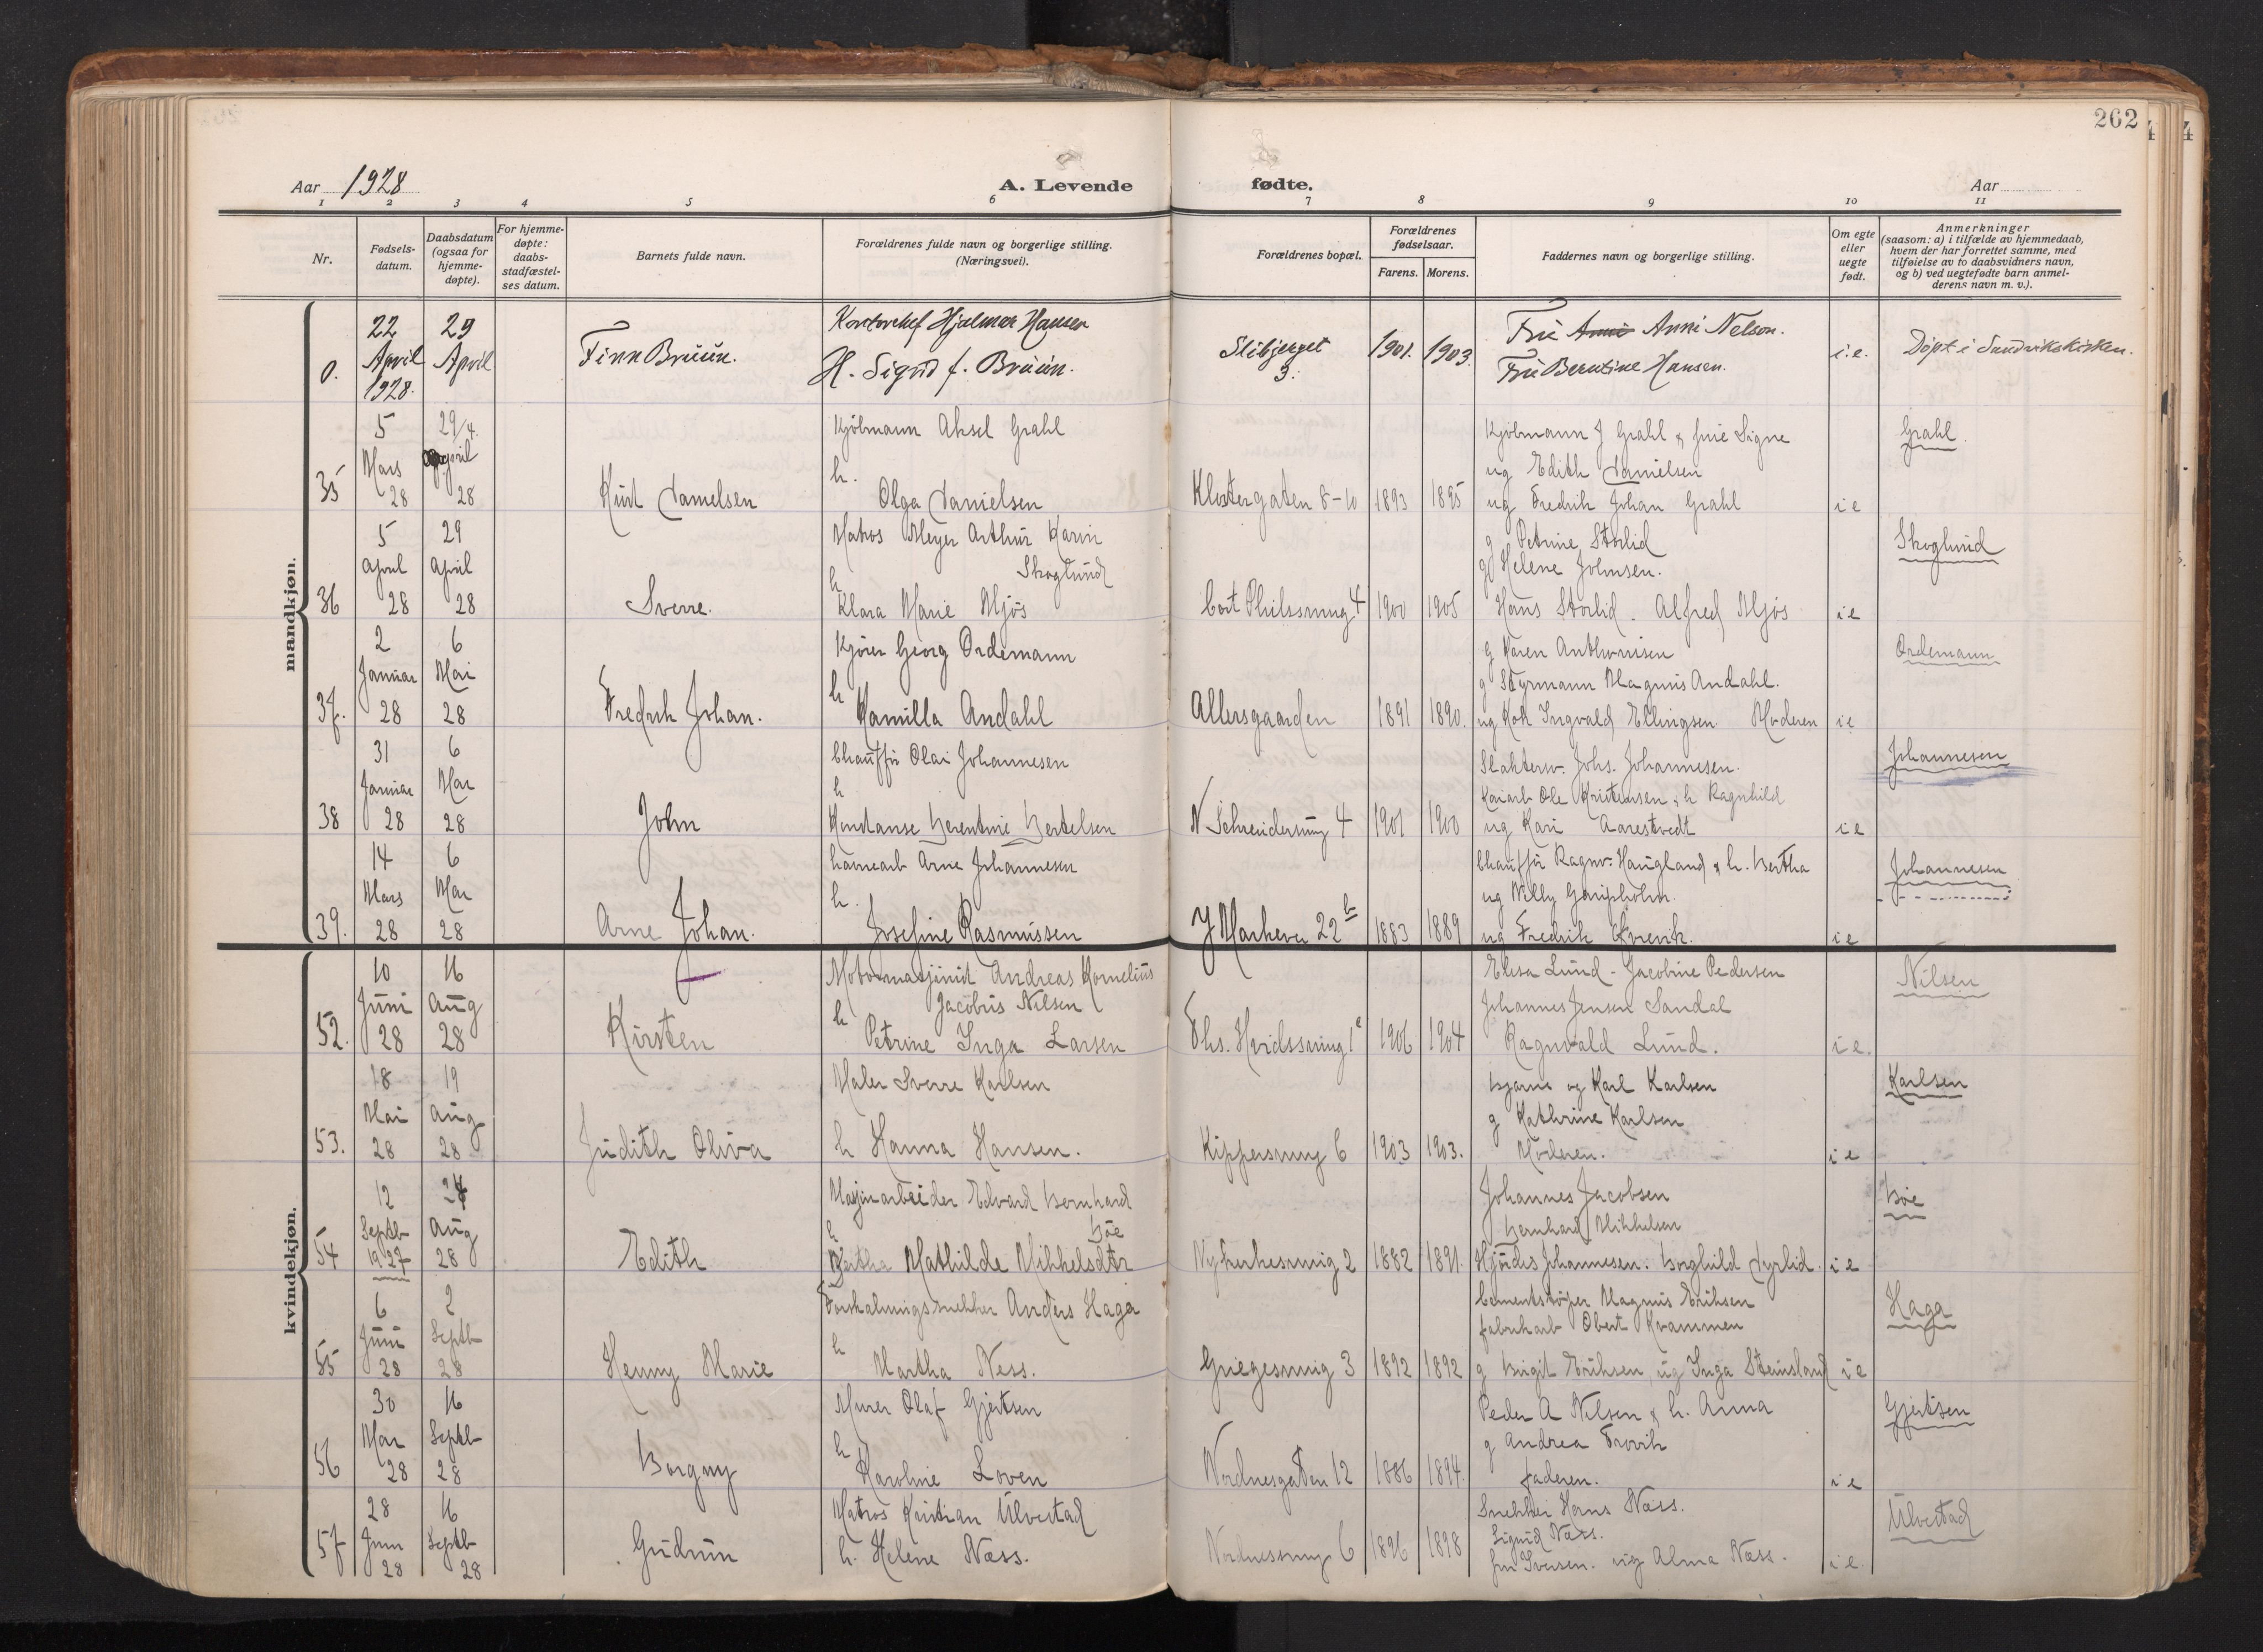 262
Aar 1928
A. Levende
fødte.
Aar
1 2 3 4 5 6 7 8 9 10 11
Nr.
Fødsels-
datum.
Daabsdatum
(ogsaa for
hjemme-
døpte).
For hjemme-
døpte:
daabs-
stadfæstel-
ses datum.
Barnets fulde navn.
Forældrenes fulde navn og borgerlige stilling.
(Næringsvei).
Forældrenes bopæl.
Forældrenes
fødselsaar.
Farens. Morens.
Faddernes navn og borgerlige stilling.
Om egte
eller
uegte
født.
Anmerkninger
(saasom: a) i tilfælde av hjemmedaab,
hvem der har forrettet samme, med
tilføielse av to daabsvidners navn,
og b) ved uegtefødte barn anmel-
derens navn m. v.).
mandkjøn.
0. 22 April 1928. 29 April
Finn Bruun.
Kontorchef Hjalmar Hansen
H. Sigrid f. Bruun.
3. 1901. 1903.
Fru Anni Nelson.
Fru Berntine Hansen.
i.e. Döpt i Sandvikskirken.
35 5 Mars 28 29/4 april 28
Kurt Danielsen
Kjølmann Aksel Grahl
h.
Olga Danielsen
Klostergaten 8-10 1893 1895
Kjølmann J Grahl & frue Signe
ug Edith Danielsen
ug Fredrik Johan Grahl
i e
Grahl
36 5 April 28 29 April 28
Sverre.
Matros Meyer Arthur Karin
Skoglund
h
Klara Marie Mjøs
Cort Philssmug 4 1900 1905
g Petrine Storlid
g Helene Johnsen.
Hans Storlid. Alfred Mjøs
i e
Skoglund
37. 2 Januar 28 6 Mai 28
Fredrik Johan.
Kjører Georg Ordemann
h
Kamilla Andahl
Allersgaarden 1891 1890.
g Karen Anthonisen
g Styrmann Magnus Andahl.
ug Kok Ingvald Ellingsen. Moderen
i e
Ordemann
38 31 Januar 28 6 Mai 28
John
Chauffør Olai Johannesen
h
Konstanse Berentine Bertelsen
N Schreudersmug 4 1901 1900
Slakterm. Johs. Johannesen.
Kaiarb Ole Kristensen & h Ragnhild
ug Kari Aarestvedt
i e
Johannesen
39. 14 Mars 28 6 Mai 28
Arne Johan.
havnearb Arne Johannesen
h.
Josefine Rasmussen
Y Markevei 22 b 1883 1889
Chauffør Ragnv. Haugland & h. Bertha
ug Willy
ug Fredrik
i e
Johannesen
kvindekjøn.
52. 10 Juni 28 16 Aug 28
Kirsten
Motormasjinist Andreas Kornelius
Jacobus Nilsen
h
Petrine Inga Larsen
Ths. Hvidssmug 1 e 1906 1904
Elesa Lund - Jacobine Pedersen
Johannes Jensen Sandal
Ragnvald Lund.
i e.
Nilsen
53. 18 Mai 28 19 Aug 28
Judith Oliva
Maler Sverre Karlsen
h Hanna Hansen.
Kippersmug 6 1903 1903.
Bjarne og Karl Karlsen
g Kathrine Karlsen
Moderen.
i e
Karlsen
54 12 Septb 1927 Aug 28
Edith
Masjinarbeider Edvard Bernhard
Bøe
h
Bertha Mathilde Mikkelsdtr
Nykirkesmug 2 1882 1891.
Johannes Jacobsen
Bernhard Mikkelsen
Hjørdis Johannesen. Borghild Dyrlid.
i e
Bøe
55 6 Juni 28 2 Septb 28
Henny Marie
Forskalningssnekker Anders Haga
h
Martha Ness.
Griegesmug 3 1892 1892
Cementstøper Magnus Eriksen
fabrikarb Obert Kvammen
g Birgit Eriksen, ug Inga Steinsland
i e
Haga
56 30 Mai 28 16 Septb 28
Borgny
Murer Olaf Gjertsen
h
Karoline Loven
Nordnesgaten 12 1886 1894.
Peder A Nilsen & h. Anna
g Andrea Trovik
Faderen.
i e
Gjertsen
57 28 Juni 28 16 Septb 28
Gudrun
Matros Kristian Ulvestad
h. Helene Næss.
Nordnessmug 6 1896 1898
Snekker Hans Næss.
Sigrid Næss.
fru Iversen. ug Alma Næss.
i e.
Ulvestad